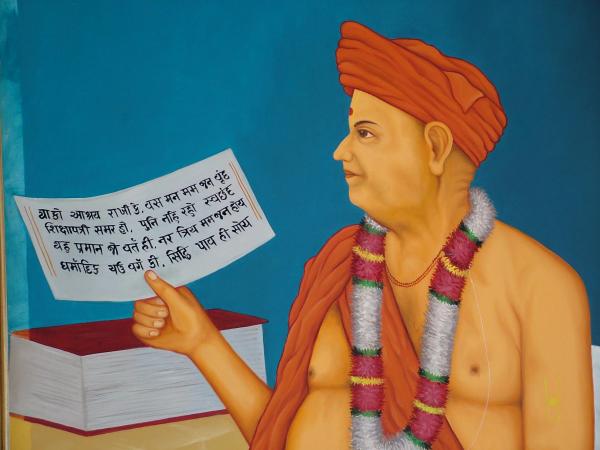 याको आश्रय राजी मन मम जन वृंद
शिक्षापत्री समर हो. पुनि नहि रहो स्वछंद
यह प्रमान जो वर्त ही. नर त्रिय मम जन होय
धर्मादिक चउ वर्ग की. सिद्धि पाव ही सोय